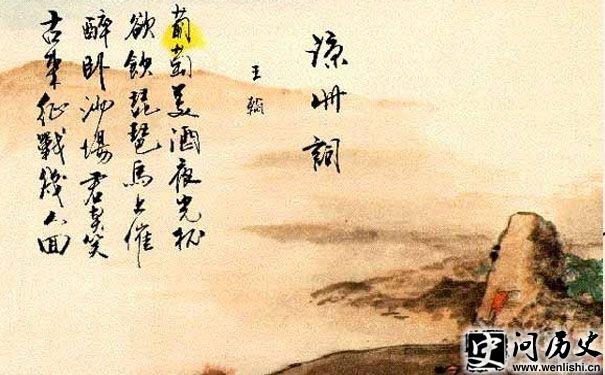 涼州詞
王翰
葡萄美酒夜光杯
欲飲琵琶馬上催
醉卧沙場君莫笑
古來征戰幾人囬
史 问历史
www.wenlishi.cn